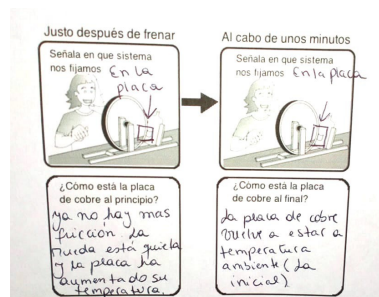 Justo después de frenar
Señala en que sistema
nos fijamos En la
placa
¿Cómo está la placa
de cobre al principio?
ya no hay mas
fricción. La
rueda está quieta
y la placa ha
aumentado su
temperatura.
Al cabo de unos minutos
Señala en que sistema
nos fijamos En la placa
¿Cómo está la placa
de cobre al final?
La placa de cobre
vuelve a estar a
temperatura
ambiente (la
inicial)